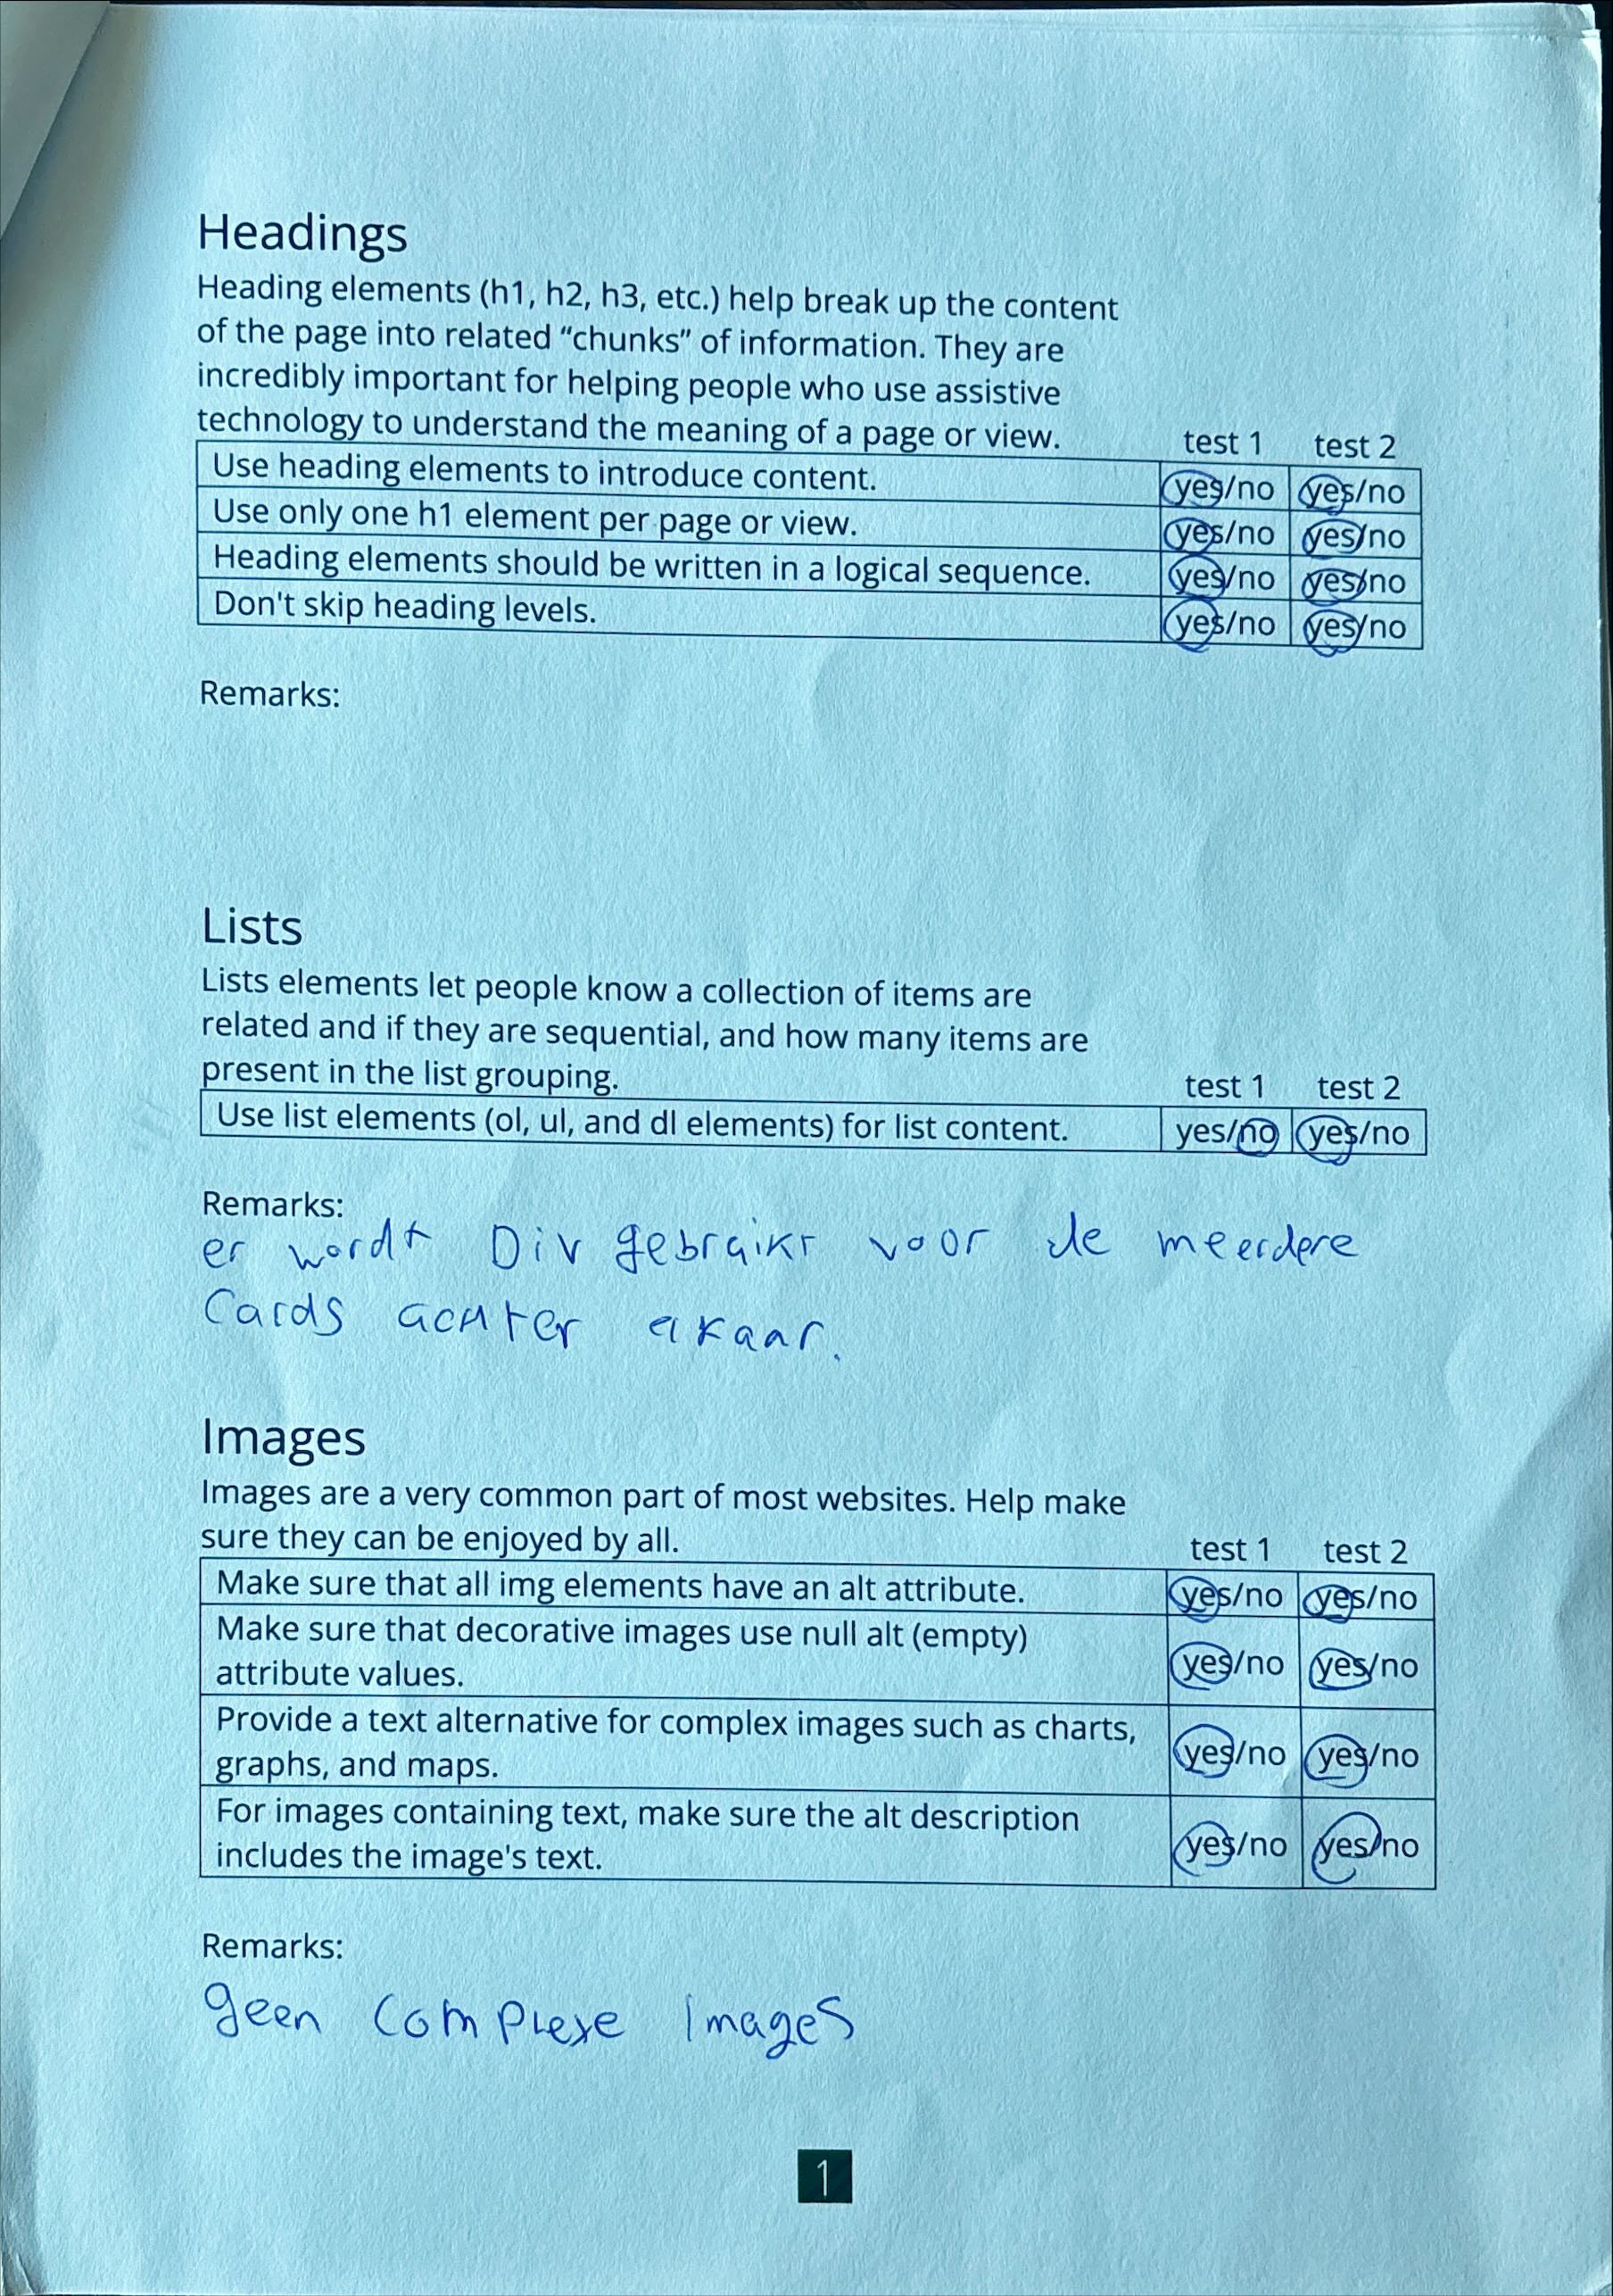 Headings
Heading elements (h1, h2, h3, etc.) help break up the content
of the page into related “chunks” of information. They are
incredibly important for helping people who use assistive
technology to understand the meaning of a page or view. test 1 test 2
Use heading elements to introduce content. yes/no yes/no
Use only one h1 element per page or view. yes/no yes/no
Heading elements should be written in a logical sequence. yes/no yes/no
Don't skip heading levels. yes/no yes/no
Remarks:
Lists
Lists elements let people know a collection of items are
related and if they are sequential, and how many items are
present in the list grouping. test 1 test 2
Use list elements (ol, ul, and dl elements) for list content. yes/no yes/no
Remarks:
er wordt Div gebraikt voor de meerdere
Cards achter elkaar.
Images
Images are a very common part of most websites. Help make
sure they can be enjoyed by all. test 1 test 2
Make sure that all img elements have an alt attribute. yes/no yes/no
Make sure that decorative images use null alt (empty)
attribute values. yes/no yes/no
Provide a text alternative for complex images such as charts,
graphs, and maps. yes/no yes/no
For images containing text, make sure the alt description
includes the image's text. yes/no yes/no
Remarks:
geen complexe Images
1